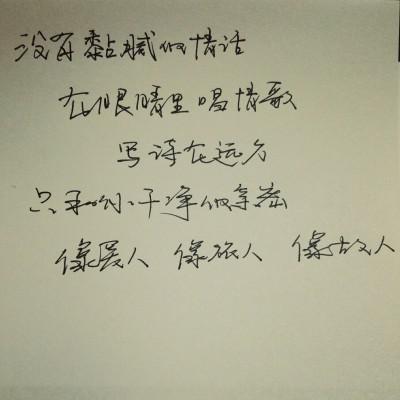 没有黏腻的情话
在眼睛里唱情歌
写诗在远方
只和你干净的
像爱人 像旅人 像故人